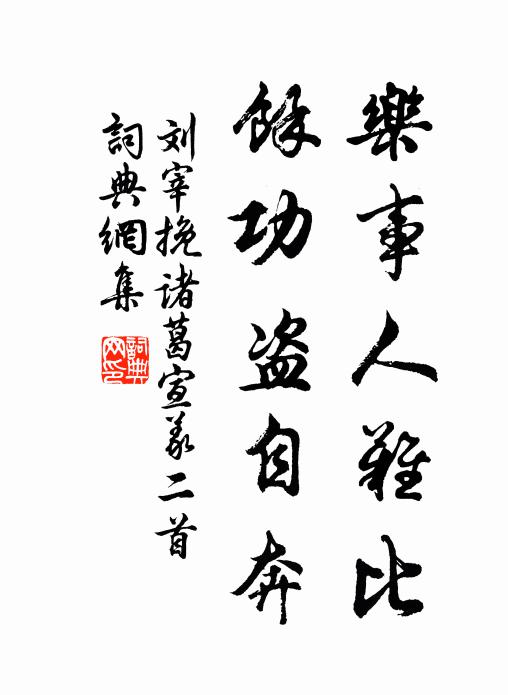 樂事人難比
餘功盗自奔
刘宰挽諸葛宣義二首
詞典網集
詞典网印